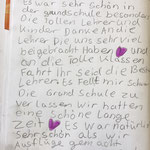 Es war sehr schön in
der grundschule besonders
Die Tollen Lehrer und
Kinder Danke An die
Lehrer Die uns sehr viel
begebracht Haben und
an die Tolle Klassen
Fahrt Ihr seid die Besten
Lehrer Es fällt mir schwer
Die Grund schule zu
Ver Lassen wir hatten
eine schöne Lange
Zeit Es war natürlich
Sehr schön als wir
Ausflüge gemacht